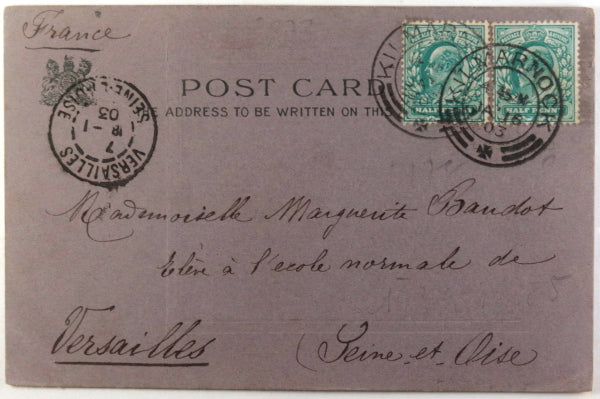 France
POST CARD
E ADDRESS TO BE WRITTEN ON THIS
HALF PENNY
KILMARNOCK
JA 16
03
VERSAILLES
7
18 - 1
03
SEINE-ET-OISE
Mademoiselle Marguerite Baudot
Elève à l'ecole normale de
Versailles
(Seine-et-Oise